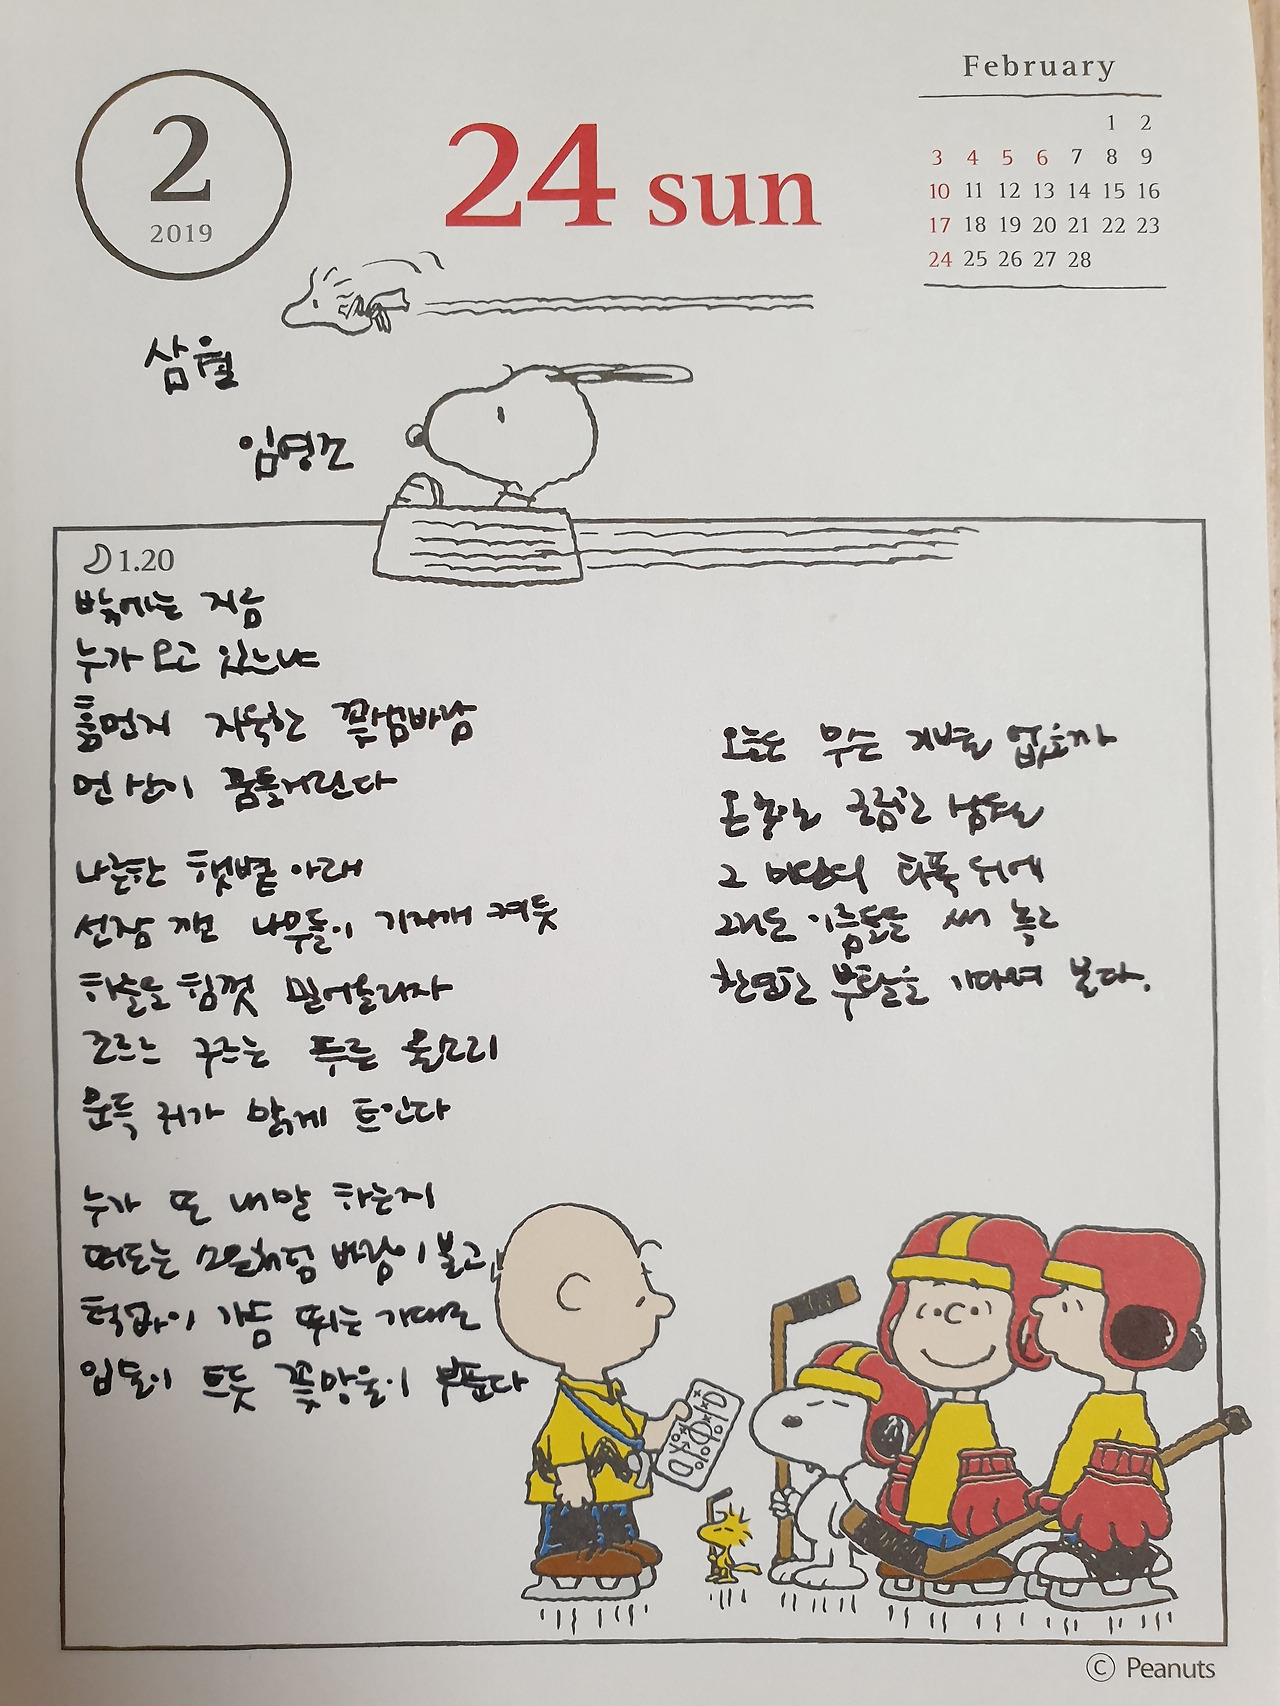 2
2019
24 sun
February
1 2
3 4 5 6 7 8 9
10 11 12 13 14 15 16
17 18 19 20 21 22 23
24 25 26 27 28
삼월
임영조
1.20
밖에는 지금
누가 오고 있느냐
흙먼지 자욱한 꽃샘바람
먼 산이 꿈틀거린다
나른한 햇볕 아래
선잠 깬 나무들이 기지개 켜듯
하늘을 힘껏 밀어올리자
조르르 구르는 푸른 물소리
문득 귀가 맑게 트인다
누가 또 내 말 하는지
떠도는 소문처럼 바람이 불고
턱없이 가슴 뛰는 기대로
입술이 트듯 꽃망울이 부푼다
오늘은 무슨 기별 없을까
온종일 궁금한 삼월
그 미완의 화폭 위에
그리운 이름들을 써 놓고
찬연한 부활을 기다려 본다.
© Peanuts